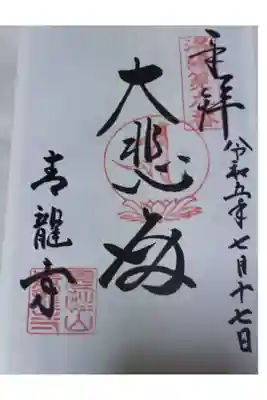 奉拝
令和五年七月十七日
大悲殿
青龍寺